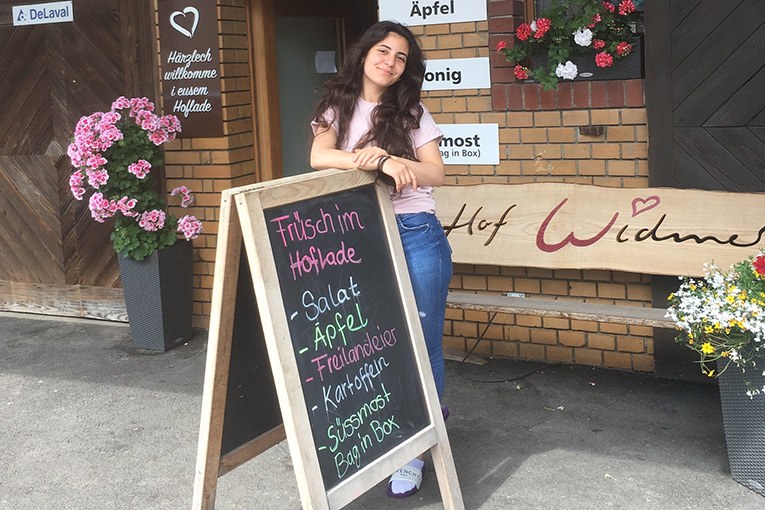 DeLaval
Härzlech
willkomme
i eusem
Hoflade
Äpfel
onig
most
Bag in Box)
Hof Widme
Früsch im
Hoflade
- Salat
- Äpfel
- Freilandeier
- Kartoffeln
- Süssmost
Bag in Box